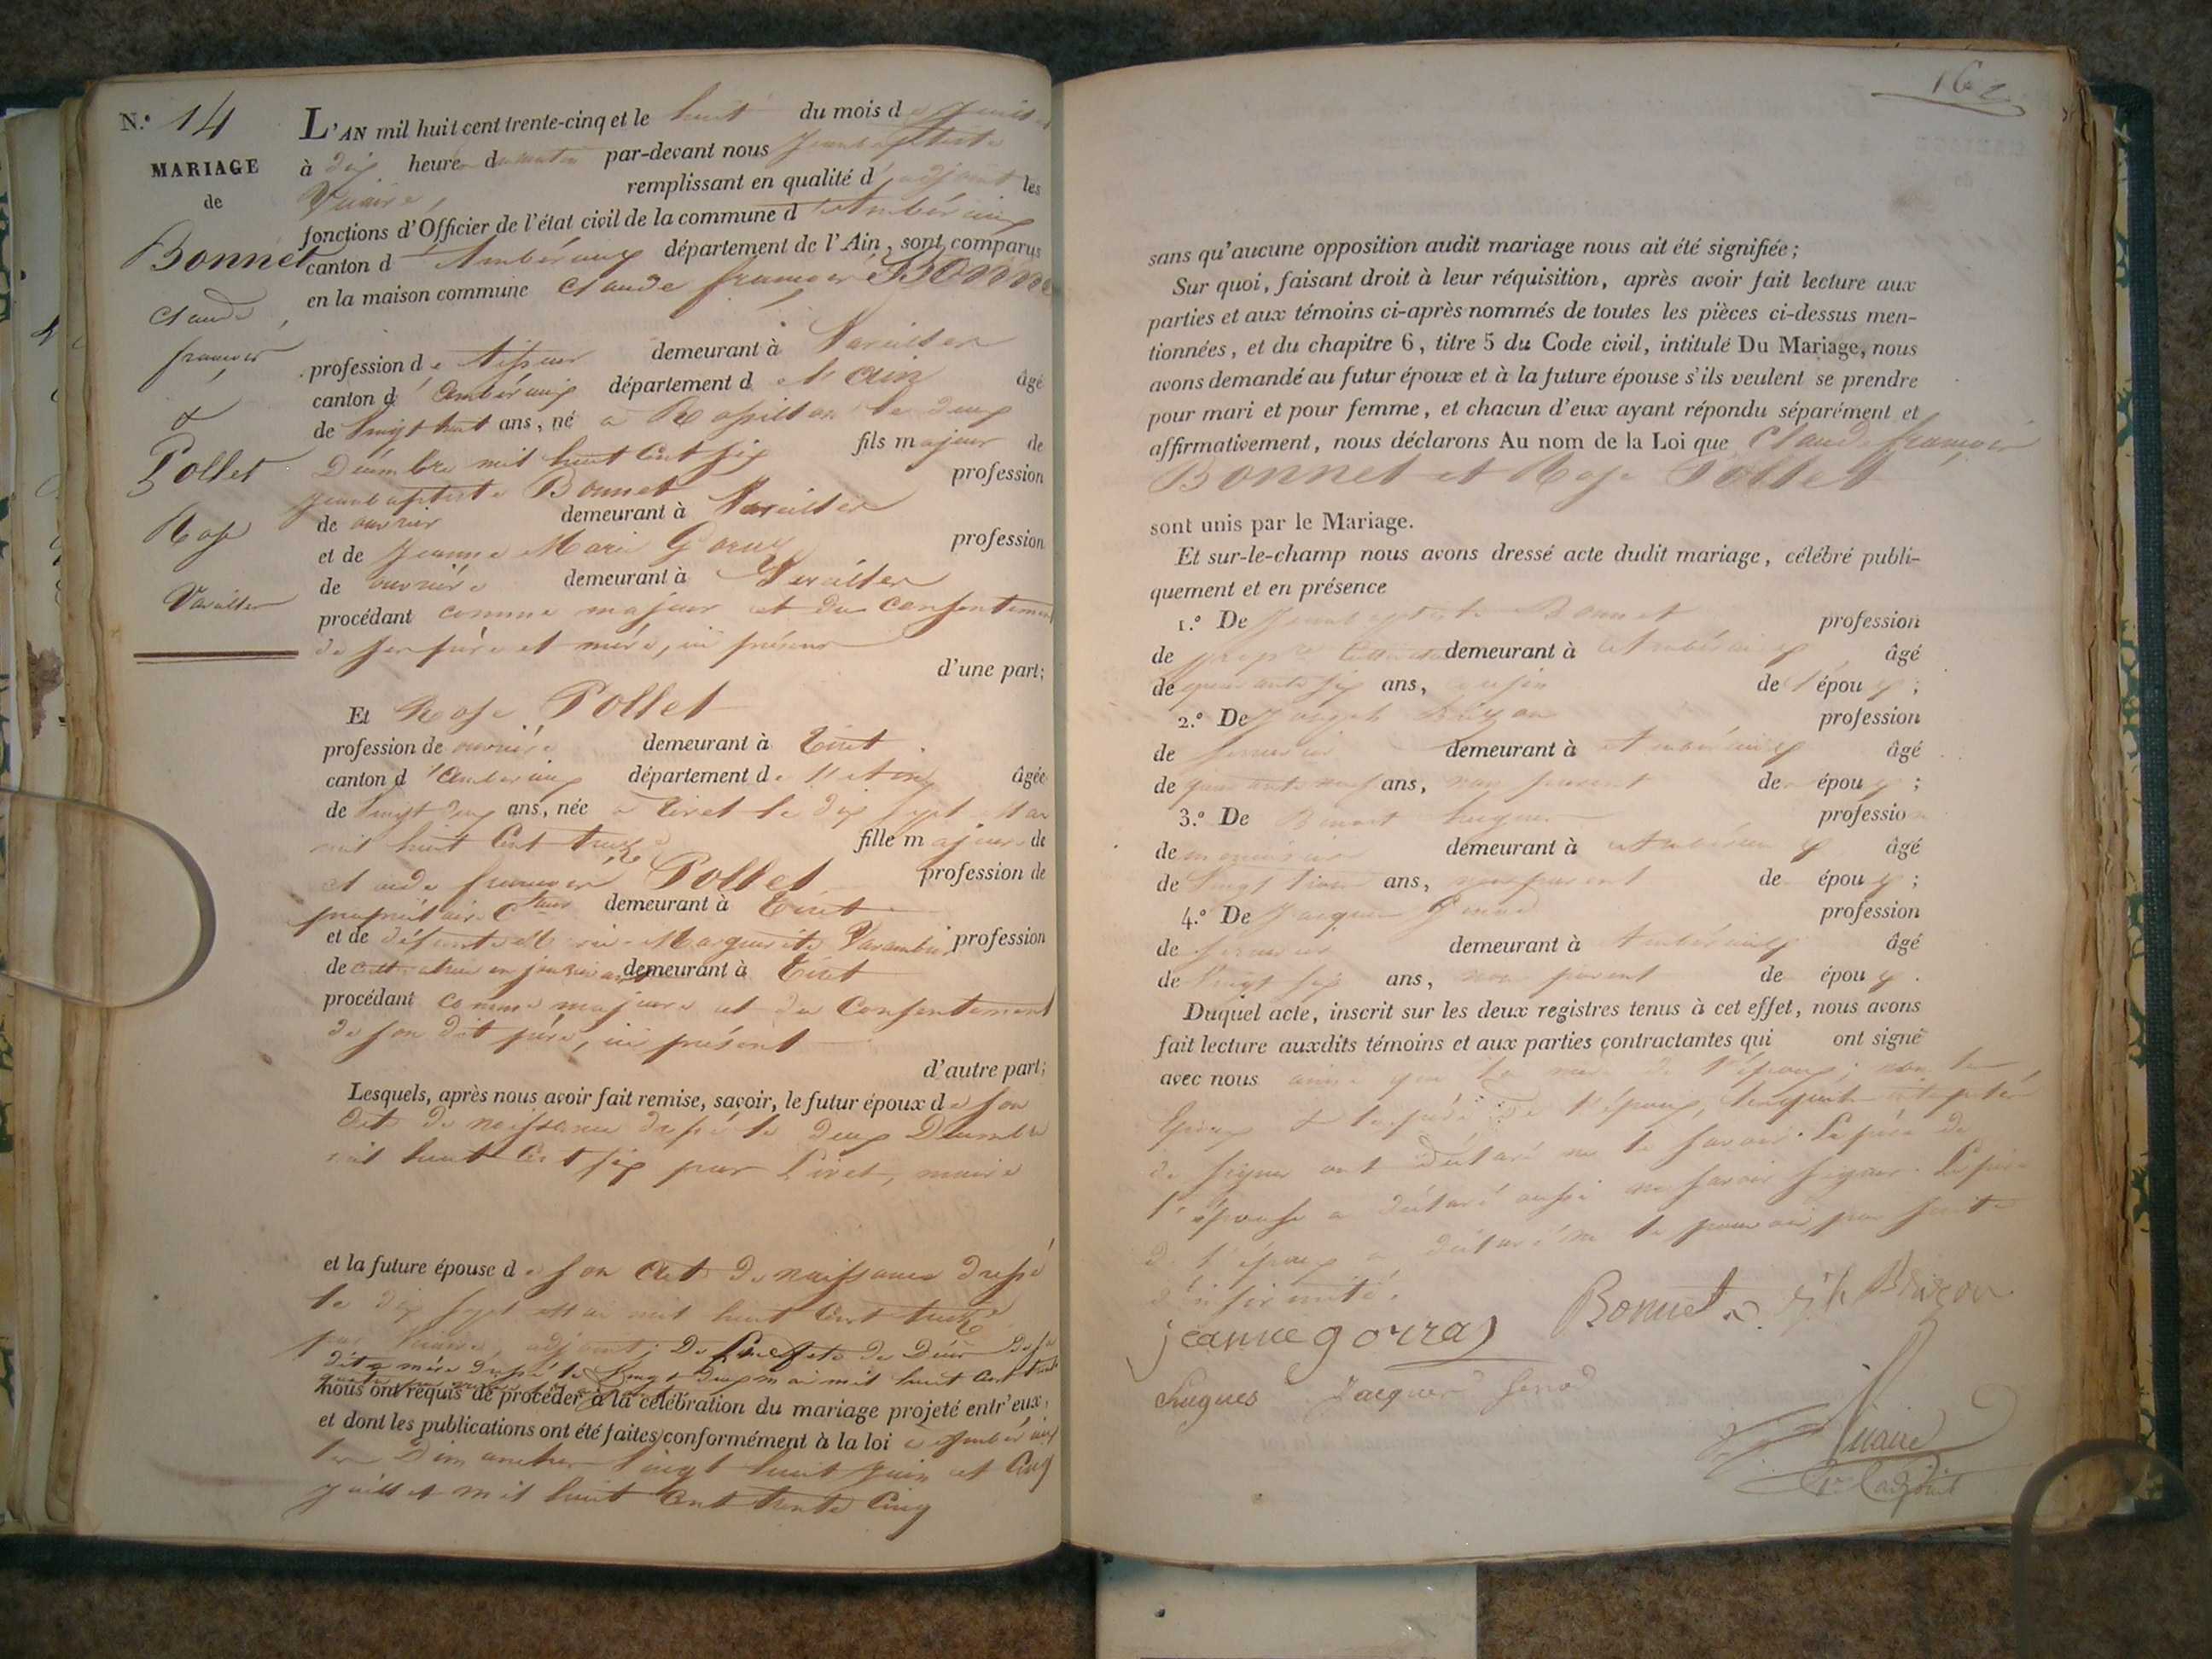 N.º 14
MARIAGE
de
Bonnet
Claude
françois
&
Pollet
Rose
Vareilles
L'AN mil huit cent trente-cinq et le huit du mois de Juillet
à dix heures du matin par-devant nous Jean baptiste
remplissant en qualité d'adjoint les
fonctions d'Officier de l'état civil de la commune d'Ambérieux
canton d'Ambérieux département de l'Ain, sont comparus
en la maison commune Claude françois Bonnet
profession de tisseur demeurant à Vareilles
canton d'Ambérieux département de l'ain âgé
de vingt huit ans, né à Rossillon le deux
Décembre mil huit cent six fils majeur de
Jean baptiste Bonnet profession
de ouvrier demeurant à Vareilles
et de Jeanne Marie profession
de ouvrière demeurant à Vareilles
procédant comme majeur et du consentement
de ses père et mère, ici présens
d'une part;
Et Rose Pollet
profession de ouvrière demeurant à Tiret
canton d'Ambérieux département de l'Ain âgée
de vingt deux ans, née à Tiret le dix sept Mai
mil huit cent treize fille majeure de
Claude françois Pollet profession de
propriétaire demeurant à Tiret
et de défunte Marie Marguerite profession
de demeurant à Tiret
procédant comme majeure et du Consentement
de son dit père, ici présent
d'autre part;
Lesquels, après nous avoir fait remise, savoir, le futur époux de son
acte de naissance dressé le deux Décembre
mil huit cent six par maire
et la future épouse de son acte de naissance dressé
le dix sept mai mil huit cent treize
par adjoint; De
dite mère dressé le vingt deux mai mil huit cent
nous ont requis de procéder à la célébration du mariage projeté entr'eux,
et dont les publications ont été faites conformément à la loi à Ambérieux
les Dimanches vingt huit Juin et Cinq
Juillet mil huit cent trente cinq
162
sans qu'aucune opposition audit mariage nous ait été signifiée;
Sur quoi, faisant droit à leur réquisition, après avoir fait lecture aux
parties et aux témoins ci-après nommés de toutes les pièces ci-dessus men-
tionnées, et du chapitre 6, titre 5 du Code civil, intitulé Du Mariage, nous
avons demandé au futur époux et à la future épouse s'ils veulent se prendre
pour mari et pour femme, et chacun d'eux ayant répondu séparément et
affirmativement, nous déclarons Au nom de la Loi que Claude françois
Bonnet et Rose Pollet
sont unis par le Mariage.
Et sur-le-champ nous avons dressé acte dudit mariage, célébré publi-
quement et en présence
1.º De Jean baptiste Bonnet profession
de demeurant à Ambérieux âgé
de quarante six ans, cousin de l'époux;
2.º De Joseph profession
de demeurant à Ambérieux âgé
de quarante neuf ans, non parent de époux;
3.º De Benoit hugues profession
de menuisier demeurant à Ambérieux âgé
de vingt trois ans, non parent de époux;
4.º De Jacques profession
de demeurant à Ambérieux âgé
de vingt six ans, non parent de époux.
Duquel acte, inscrit sur les deux registres tenus à cet effet, nous avons
fait lecture auxdits témoins et aux parties contractantes qui ont signé
avec nous ainsi que la mère de l'époux; non les
époux
de signer ont déclaré ne le savoir. Le père de
l'épouse a déclaré aussi ne savoir signer. Le père
de l'époux a déclaré ne le pouvoir par suite
d'infirmité.
jeanne gorraz Bonnet
hugues Jacques